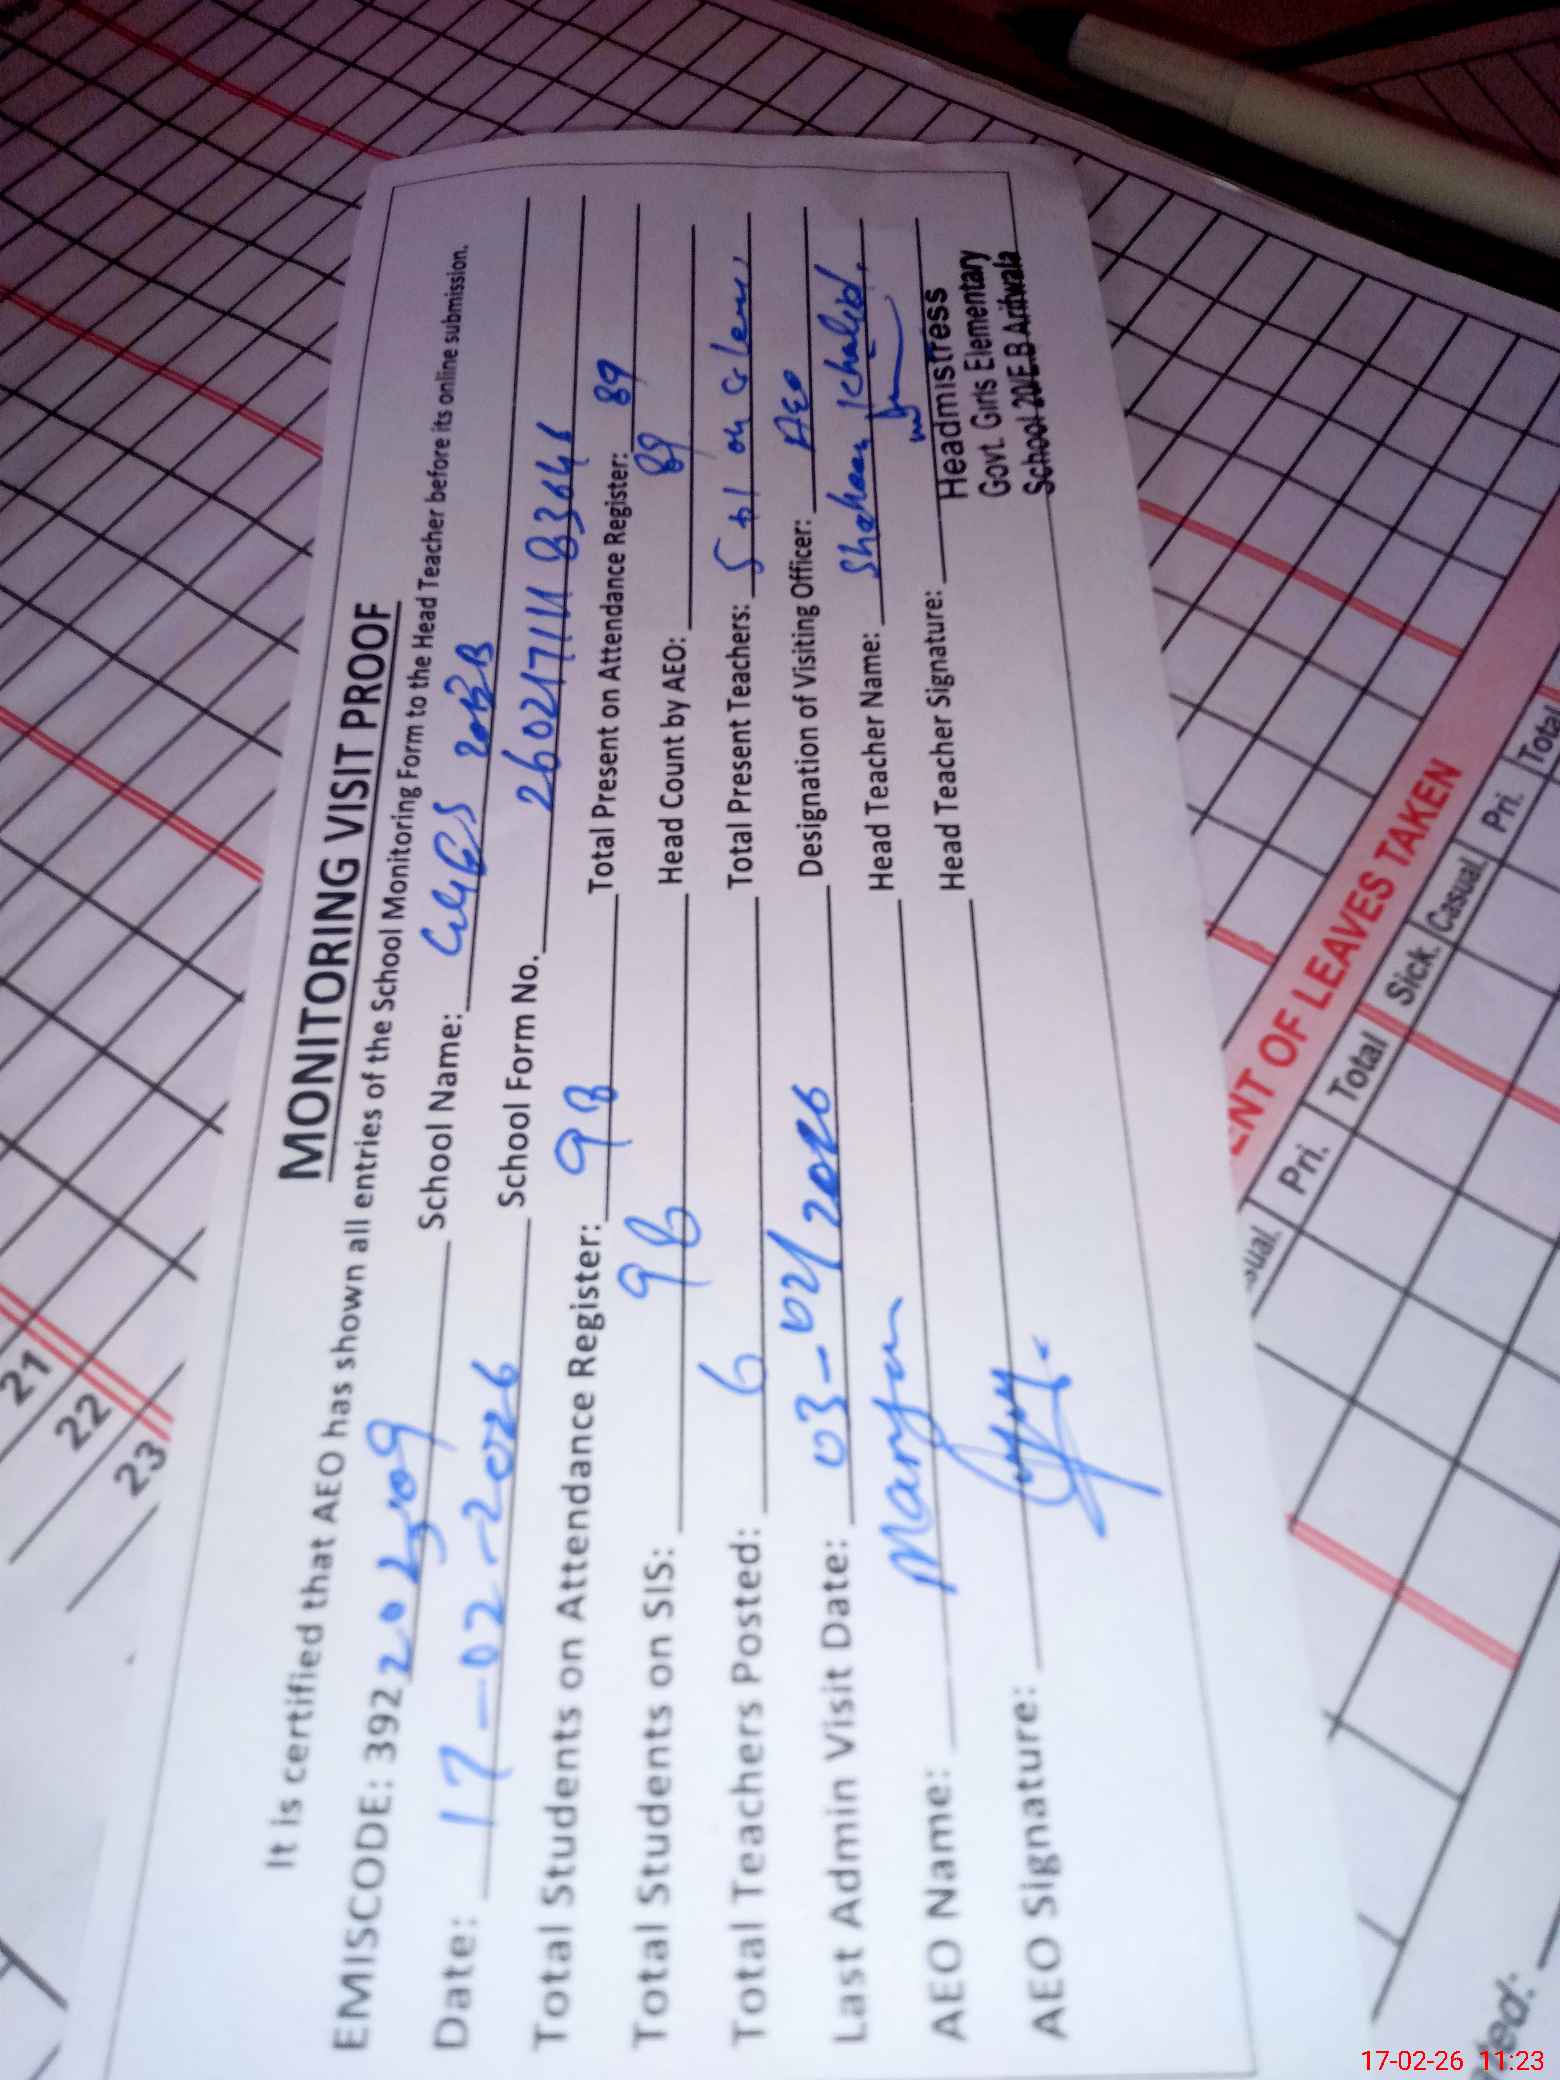 MONITORING VISIT PROOF
It is certified that AEO has shown all entries of the School Monitoring Form to the Head Teacher before its online submission.
EMISCODE: 392 School Name: GGES 20EB
Date: 17-02-2026 School Form No.
Total Students on Attendance Register: 98 Total Present on Attendance Register: 89
Total Students on SIS: 98 Head Count by AEO: 89
Total Teachers Posted: 6 Total Present Teachers: 5 +1 on
Last Admin Visit Date: 03-02/2026 Designation of Visiting Officer: AEO
AEO Name: Maryam Head Teacher Name: Khalid
AEO Signature: Head Teacher Signature:
Headmistress
Govt. Girls Elementary
School 20/E.B Arifwala
21
22
23
ENT OF LEAVES TAKEN
Pri. Total Sick. Casual Pri. Total
17-02-26 11:23